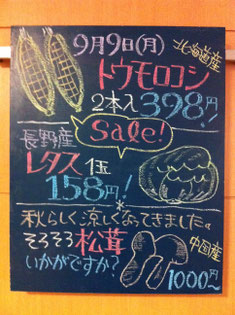 9月9日(月)
北海道産
トウモロコシ
2本入 398円!
Sale!
長野産
レタス 1玉
158円!
秋らしく涼しくなってきました。
そろそろ松茸
いかがですか?
中国産
1000円〜